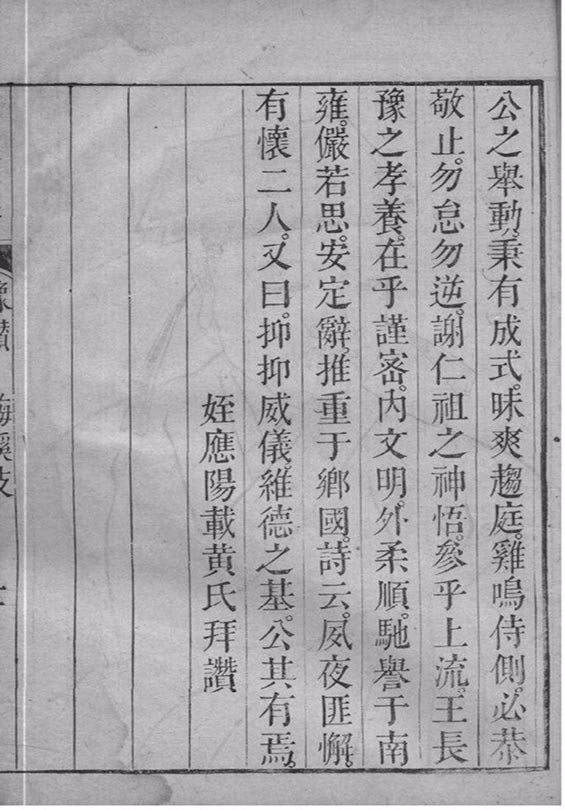 公之舉動。秉有成式。昧爽趨庭。雞鳴侍側。必恭
敬止。勿怠勿逆。謝仁祖之神悟。參乎上流。王長
豫之孝養。在乎謹密。內文明。外柔順。馳譽于南
雍。儼若思。安定辭。推重于鄉國。詩云。夙夜匪懈。
有懷二人。又曰。抑抑威儀維德之基。公其有焉。
姪應陽載黃氏拜讚
像讚 梅溪支